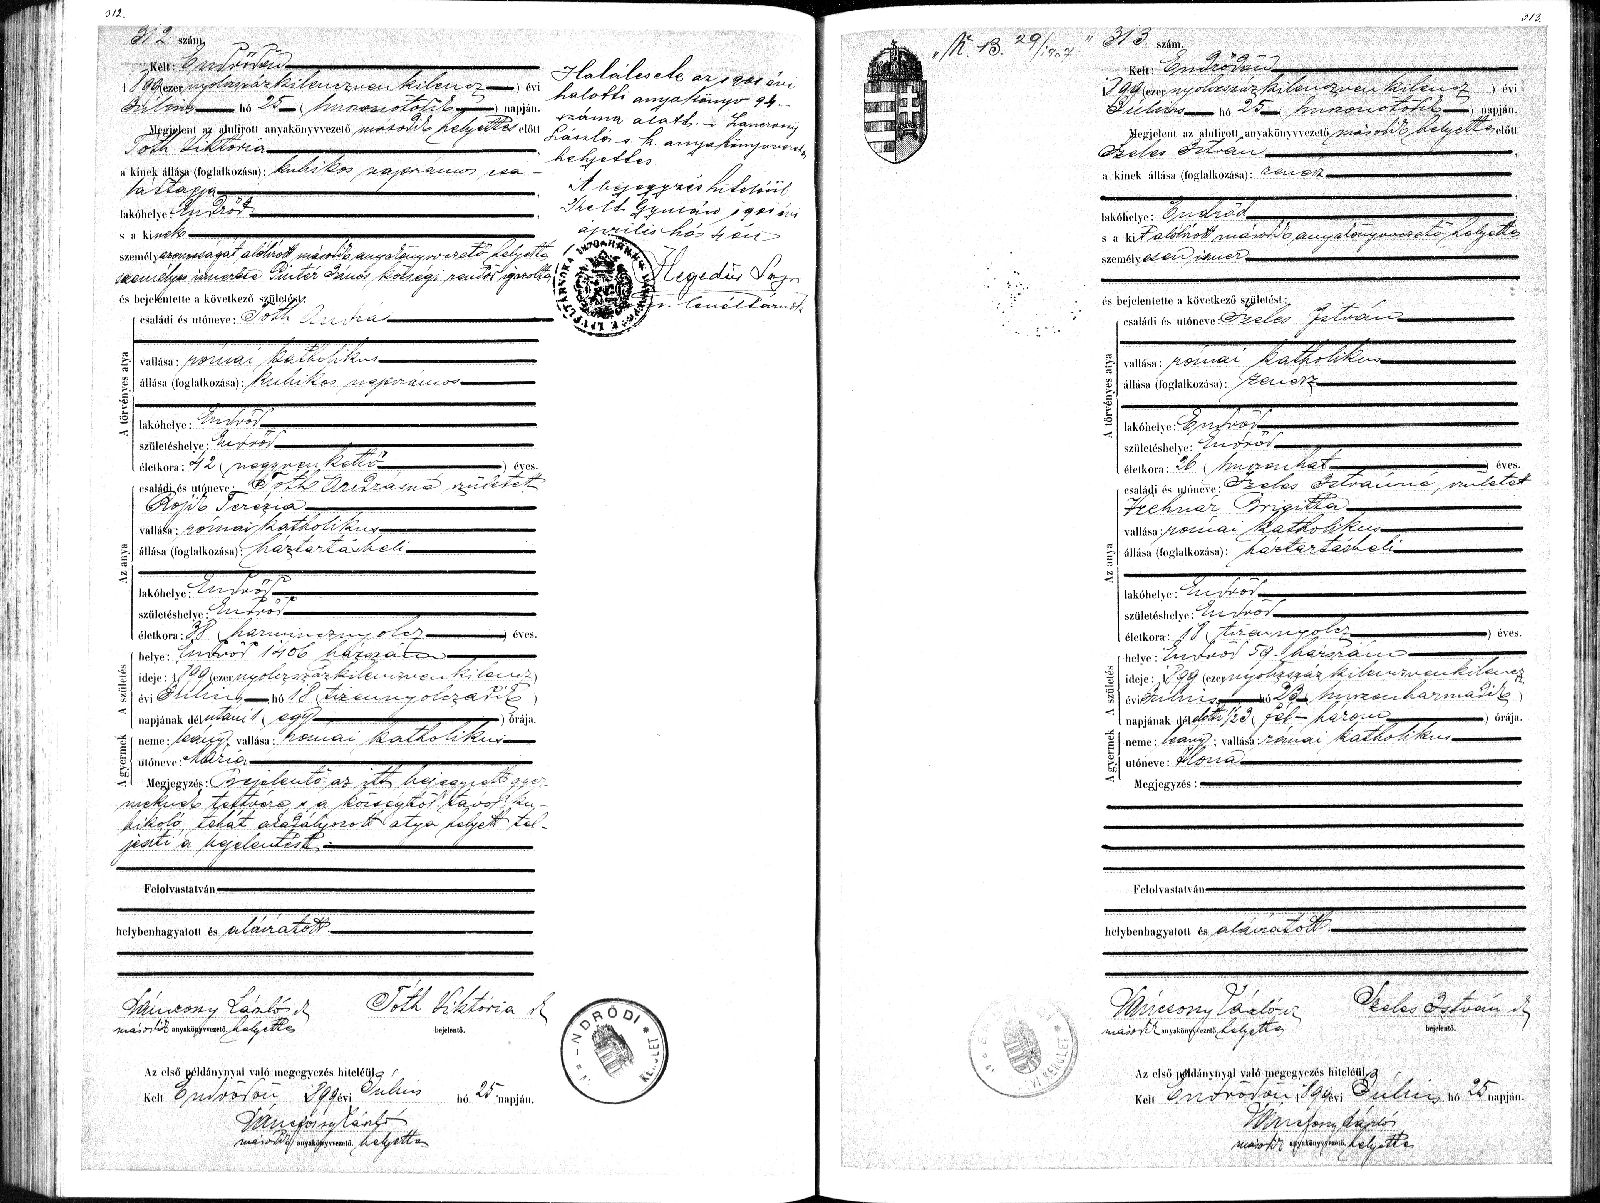 312.
312 szám.
Kelt: Endrődön
1899 (ezernyolczszázkilenczvenkilencz) évi
Július hó 25 (huszonötödik) napján.
Megjelent az alulirott anyakönyvvezető másodk helyettes előtt
Tóth Viktória
a kinek állása (foglalkozása): kubikos napszámos csa-
ládtagja
lakóhelye: Endrőd
s a kinek
személyazonosságát alólirott másodk anyakönyvvezető helyettes
személyes ismerőse Pintér János községi rendőr igazolta
és bejelentette a következő születést:
A törvényes atya
családi és utóneve: Tóth András
vallása: római katholikus
állása (foglalkozása): kubikos napszámos
lakóhelye: Endrőd
születéshelye: Endrőd
életkora: 42 (negyvenkettő) éves.
Az anya
családi és utóneve: Tóth Andrásné született
Rojik Terézia
vallása: római katholikus
állása (foglalkozása): háztartásbeli
lakóhelye: Endrőd
születéshelye: Endrőd
életkora: 38 (harmincznyolcz) éves.
A születés
helye: Endrőd 1406 házszám
ideje: 1899 (ezernyolczszázkilenczvenkilencz)
évi Július hó 18 (tizennyolczadik)
napjának délutáni 1 (egy) órája.
A gyermek
neme: leány; vallása: római katholikus
utóneve: Mária
Megjegyzés: Bejelentő az itt bejegyzett gyer-
meknek testvére, s a községtől távol ku-
bikoló, tehát akadályozott atya helyett tel-
jesíti a bejelentést.
Felolvastatván
helybenhagyatott és aláiratott.
Lánczony László
másodk anyakönyvvezető. helyettes
Tóth Viktória
bejelentő.
Az első példánynyal való megegyezés hiteléül
Kelt Endrődön 1899 évi Július hó 25 napján.
Lánczony László
másodk anyakönyvvezető. helyettes
Halálesete az 1901 évi
halotti anyakönyv 94.
száma alatt. Lanczony
László s. k. anyakönyvvezető
helyettes
A bejegyzés hiteléül
Kelt Gyulán, 1901 évi
április hó 4 én
Hegedüs
levéltárnok
ENDRŐDI
KERÜLET
313.
313 szám.
Kelt: Endrődön
1899 (ezernyolczszázkilenczvenkilencz) évi
Július hó 25 (huszonötödik) napján.
Megjelent az alulirott anyakönyvvezető másodk helyettes előtt
Szeles István
a kinek állása (foglalkozása): zenész
lakóhelye: Endrőd
s a kit alólirott másodk anyakönyvvezető helyettes
személyesen ismer
és bejelentette a következő születést:
A törvényes atya
családi és utóneve: Szeles István
vallása: római katholikus
állása (foglalkozása): zenész
lakóhelye: Endrőd
születéshelye: Endrőd
életkora: 26 (huszonhat) éves.
Az anya
családi és utóneve: Szeles Istvánné, született
Brigitta
vallása: római katholikus
állása (foglalkozása): háztartásbeli
lakóhelye: Endrőd
születéshelye: Endrőd
életkora: 18 (tizennyolcz) éves.
A születés
helye: Endrőd 59. házszám
ideje: 1899 (ezernyolczszázkilenczvenkilencz
évi Július hó 23 (huszonharmadik)
napjának délelőtti 1/23 (fél-három) órája.
A gyermek
neme: leány; vallása: római katholikus
utóneve: Ilona
Megjegyzés:
Felolvastatván
helybenhagyatott és aláiratott.
Lánczony László
másodk anyakönyvvezető. helyettes
Szeles István
bejelentő.
Az első példánynyal való megegyezés hiteléül
Kelt Endrődön 1899 évi Július hó 25 napján.
Lánczony László
másodk anyakönyvvezető. helyettes